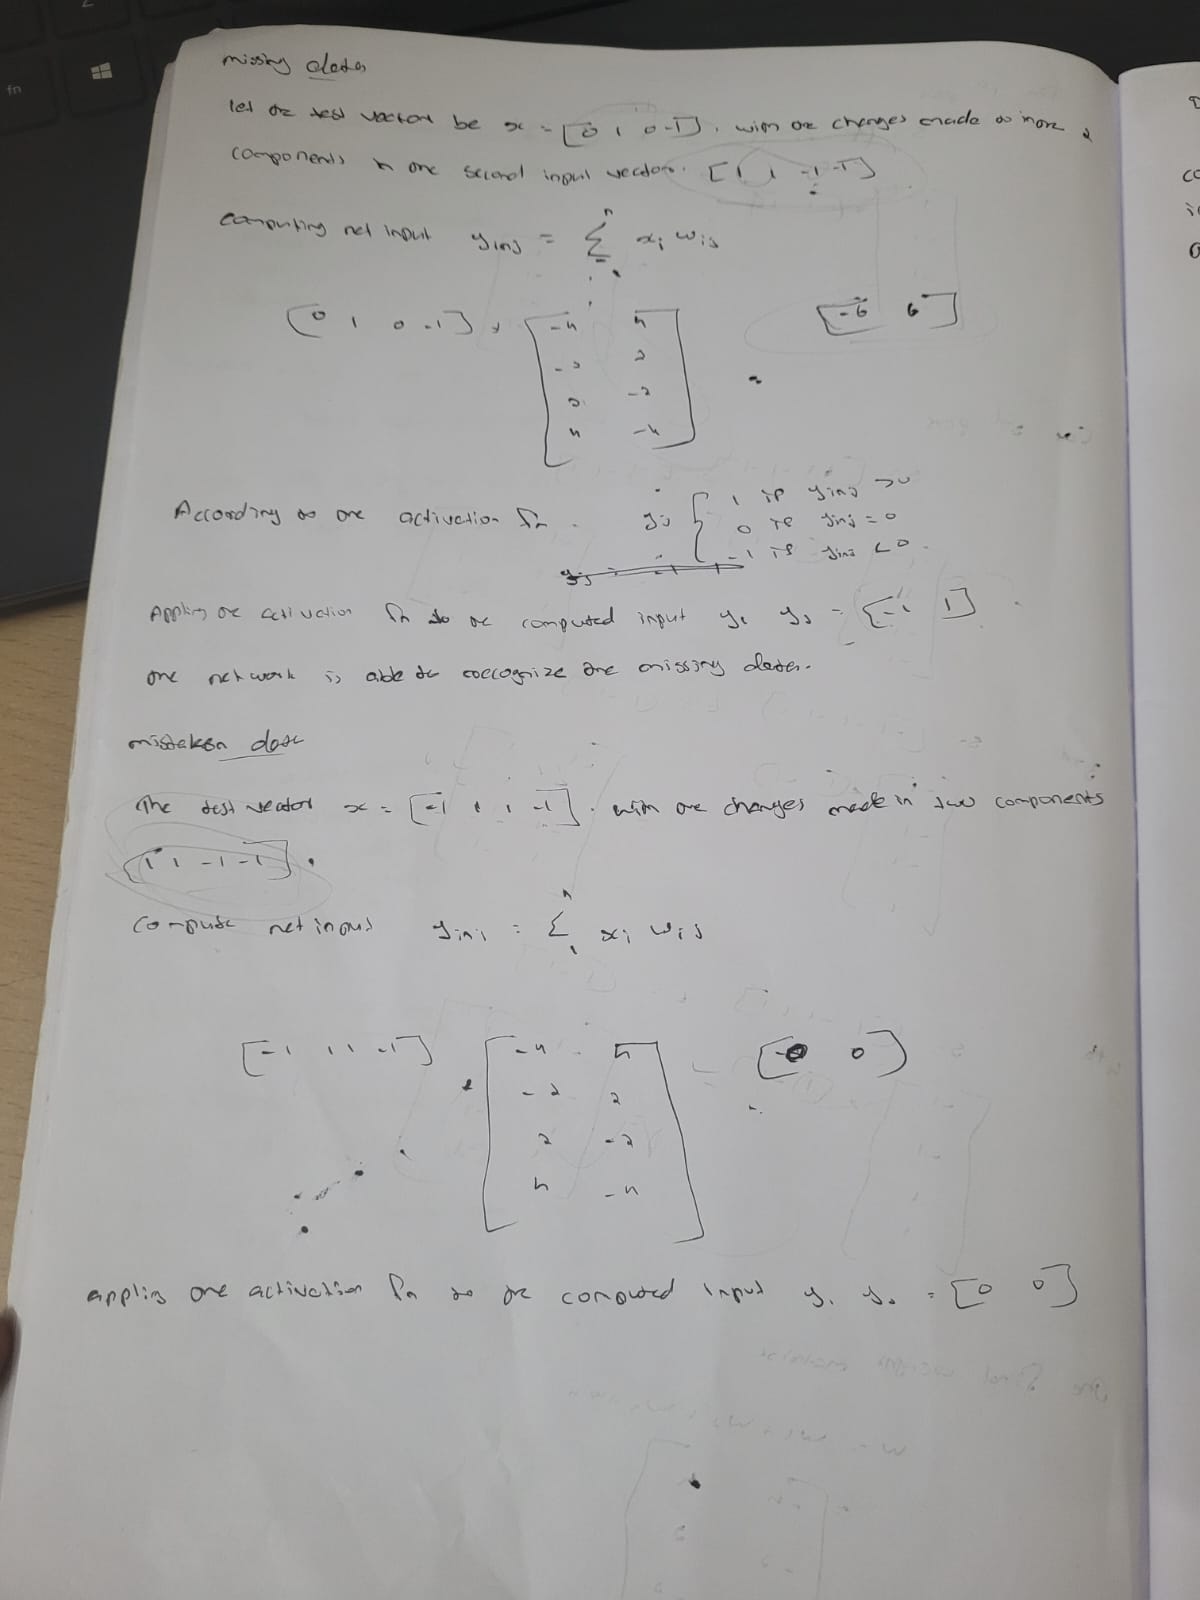 missing data
let the test vector be x = [0 1 0 -1]. with the changes made in more 2
components in the second input vector. [1 1 -1 -1]
computing net input yinj = Σ xi wij
n
[0 1 0 -1] × [-4 4
-2 2
2 -2
4 -4] = [-6 6]
According to the activation fn. yj { 1 if yinj >0
0 if yinj = 0
-1 if yinj < 0.
Appling the activation fn to the computed input y1 y2 = [-1 1].
the network is able to recognize the missing data.
mistaken data
The test vector x = [-1 1 1 -1]. with the changes made in two components
[1 1 -1 -1].
compute net input yinj = Σ xi wij
n
1
[-1 1 1 -1] . [-4 4
-2 2
2 -2
4 -4] = [0 0]
appling the activation fn to the computed input y1 y2 = [0 0]